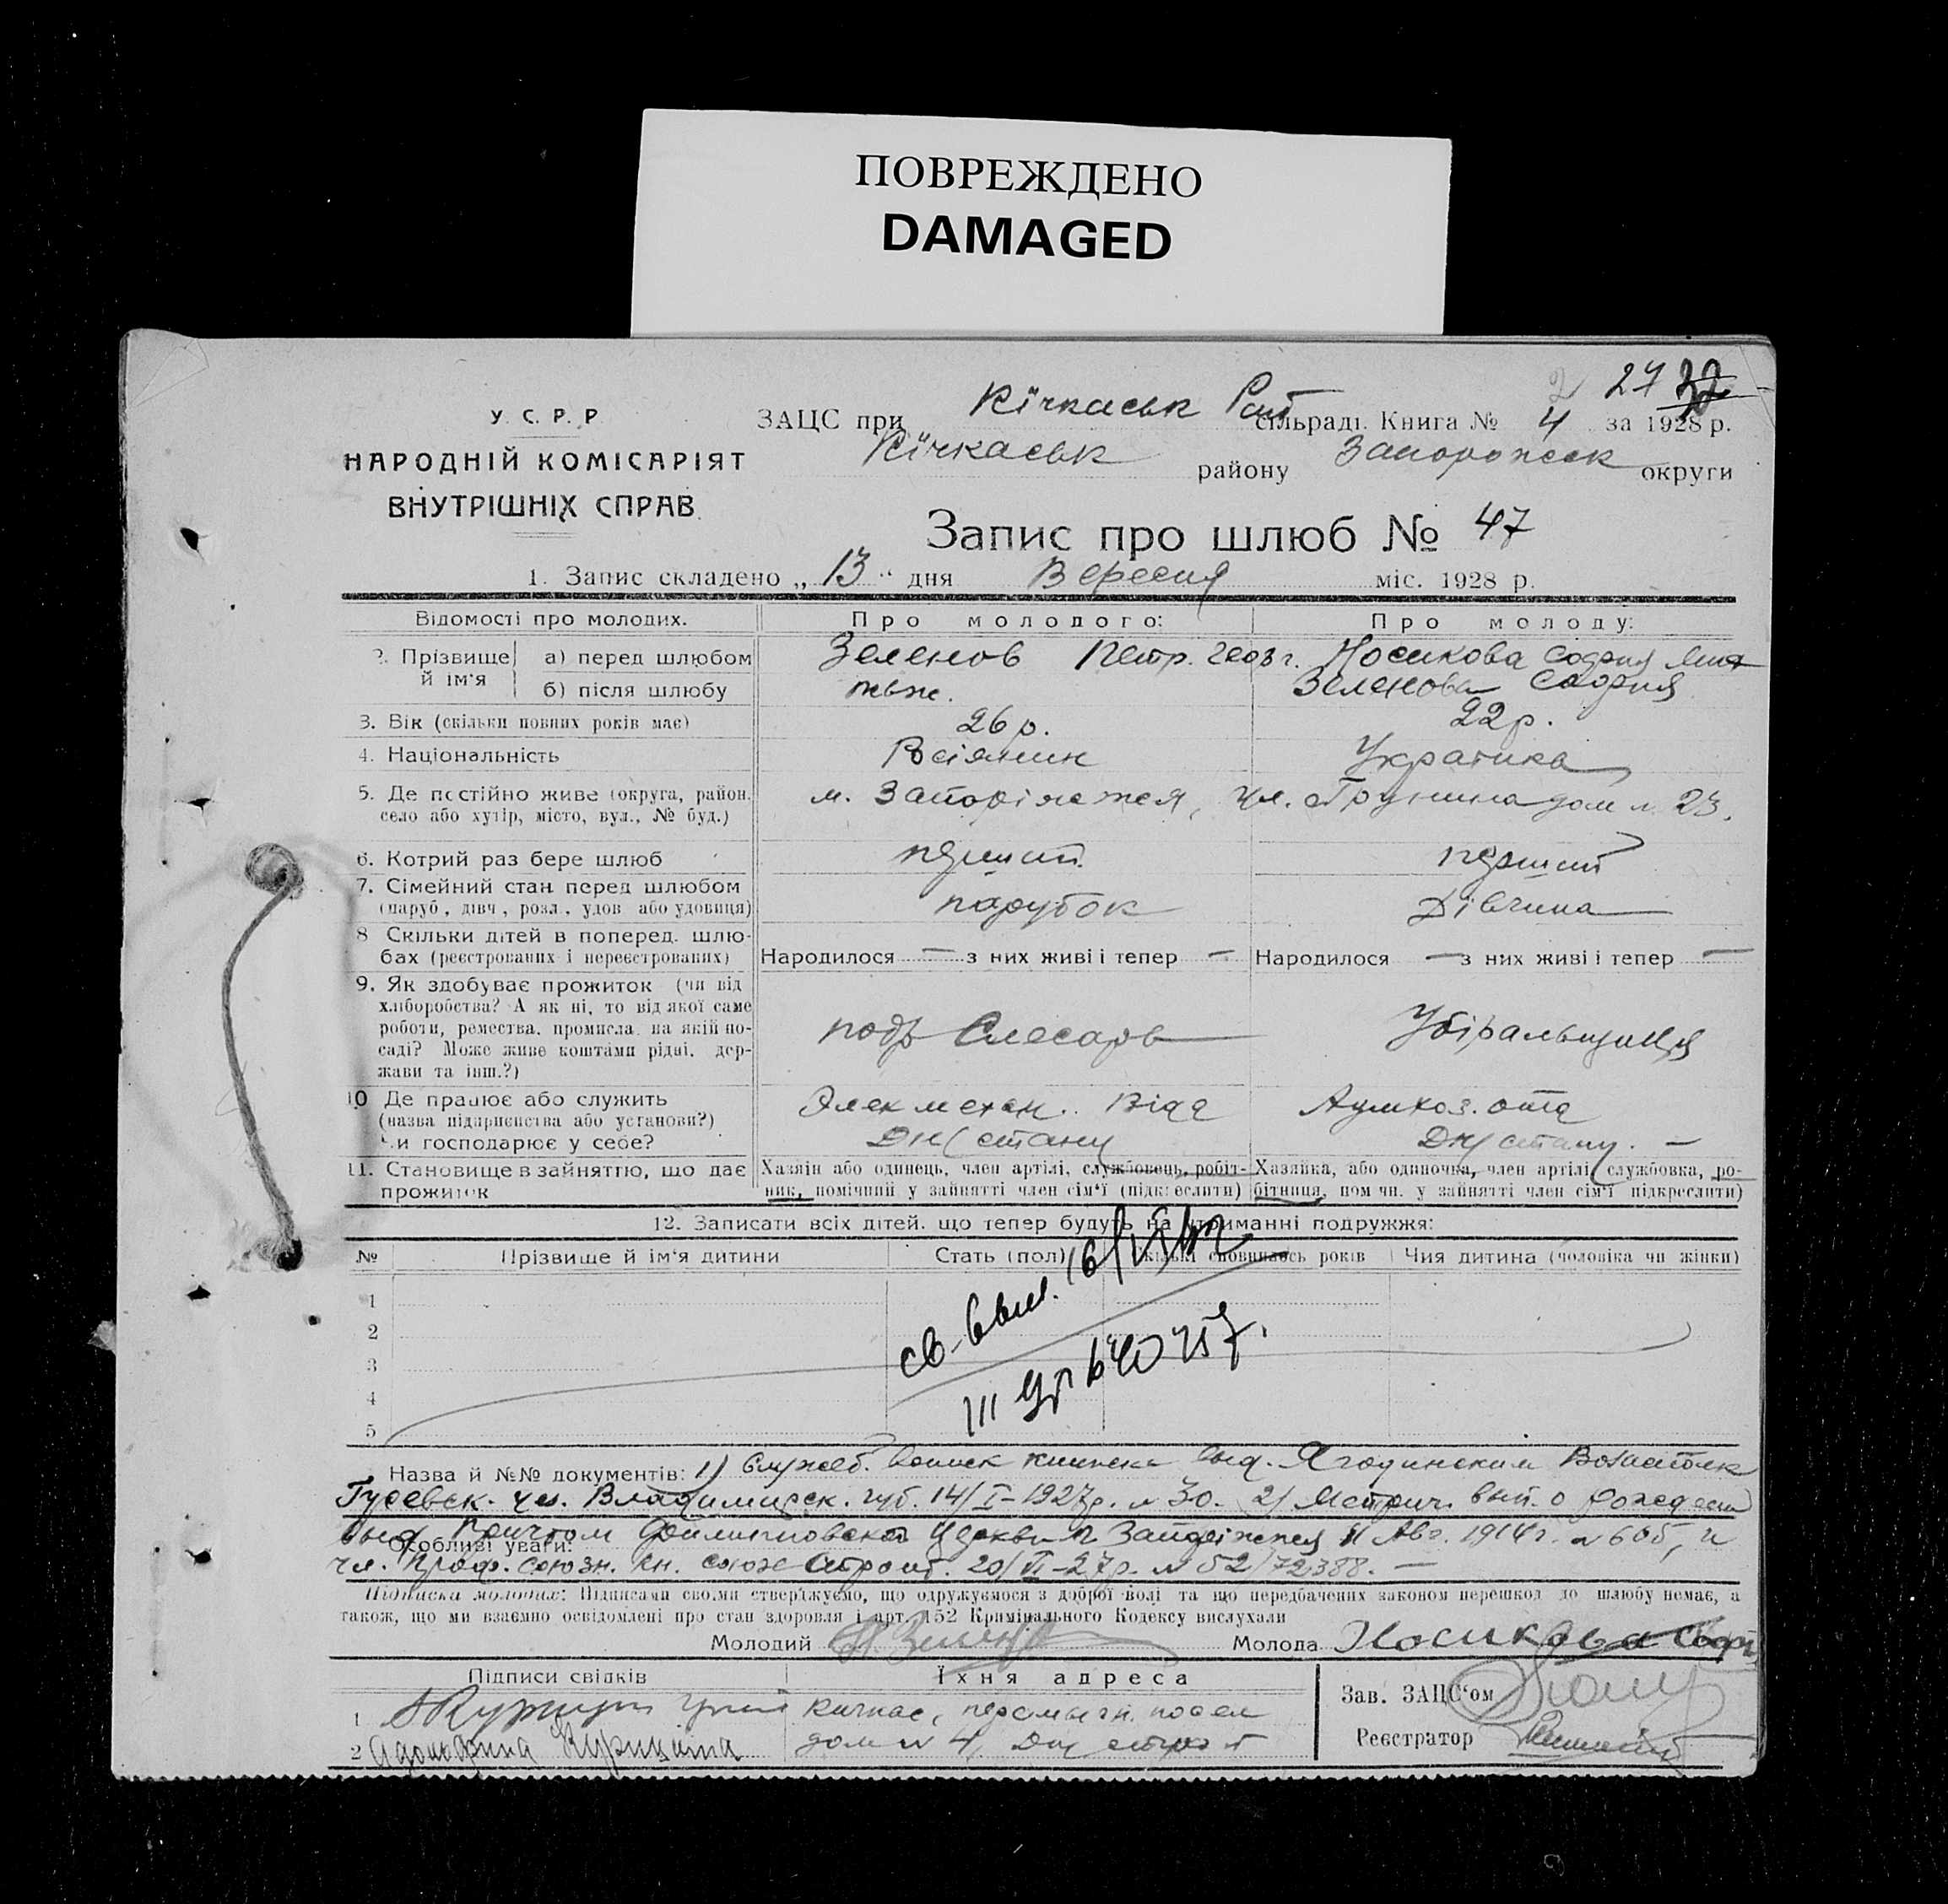 ПОВРЕЖДЕНО
DAMAGED
27 32
У. С. Р. Р
НАРОДНІЙ КОМІСАРІЯТ
ВНУТРІШНІХ СПРАВ.
ЗАЦС при Кічкаськ Рай сільраді. Книга № 4 за 1928 р.
Кічкаськ району Запорожск округи
Запис про шлюб № 47
1. Запис складено „ 13 “ дня Вересня міс. 1928 р.
Відомості про молодих. Про молодого: Про молоду:
2. Прізвище й ім'я а) перед шлюбом Зеленов Петр. Носикова София
б) після шлюбу Зеленова София
3. Вік (скільки повних років має) 26 р. 22 р.
4. Національність Росіянин Українка
5. Де постійно живе (округа, район, село або хутір, місто, вул., № буд.) м. Запоріжжя, ул. дом № 23.
6. Котрий раз бере шлюб перший перший
7. Сімейний стан перед шлюбом (паруб., дівч., розл., удов. або удовиця) парубок Дівчина
8 Скільки дітей в поперед. шлюбах (реєстрованих і нереєстрованих) Народилося — з них живі і тепер — Народилося — з них живі і тепер —
9. Як здобуває прожиток (чи від хліборобства? А як ні, то від якої саме роботи, ремества, промисла, на якій посаді? Може живе коштами рідні, держави та інш.?) Слесарь Убіральщиця
10 Де працює або служить (назва підприємства або установи?) Чи господарює у себе? Элекмехан. Від Дн/стану Дн/стану. —
11. Становище в зайняттю, що дає прожиток Хазяїн або одинець, член артілі, службовець, робітник, помічний у зайнятті член сім'ї (підкреслити) Хазяйка, або одиночка, член артілі, службовка, робітниця, помічн. у зайнятті член сім'ї підкреслити)
12. Записати всіх дітей, що тепер будуть на утриманні подружжя:
№ Прізвище й ім'я дитини Стать (пол) Скільки сповнилось років Чия дитина (чоловіка чи жінки)
1
2
3
4
5
св. выд.
III
Назва й №№ документів: 1) Служеб. воинск книжка выд. Ягодинским
Гусевск. Владимирск. губ. 14/I-1927 р. № 30. 2) Метрич. вып. о рождении
выд Причтом церкви Запоріжжя 11 Авг. 1914 г. № 605, и
Особливі уваги:
чл. Проф. союзн. кн. союза Строит. 20/VI-27 р. № 52/72388. —
Підписка молодих: Підписами своїми стверджуємо, що одружуємося з доброї волі та що передбачених законом перешкод до шлюбу немає, а
також, що ми взаємно освідомлені про стан здоровля і арт. 152 Кримінального Кодексу вислухали
Молодий П. Зеленов Молода Носикова Софія
Підписи свідків Їхня адреса
1 Кичкас, посел
2 Адольфина Курицина дом № 4,
Зав. ЗАЦС'ом
Реєстратор